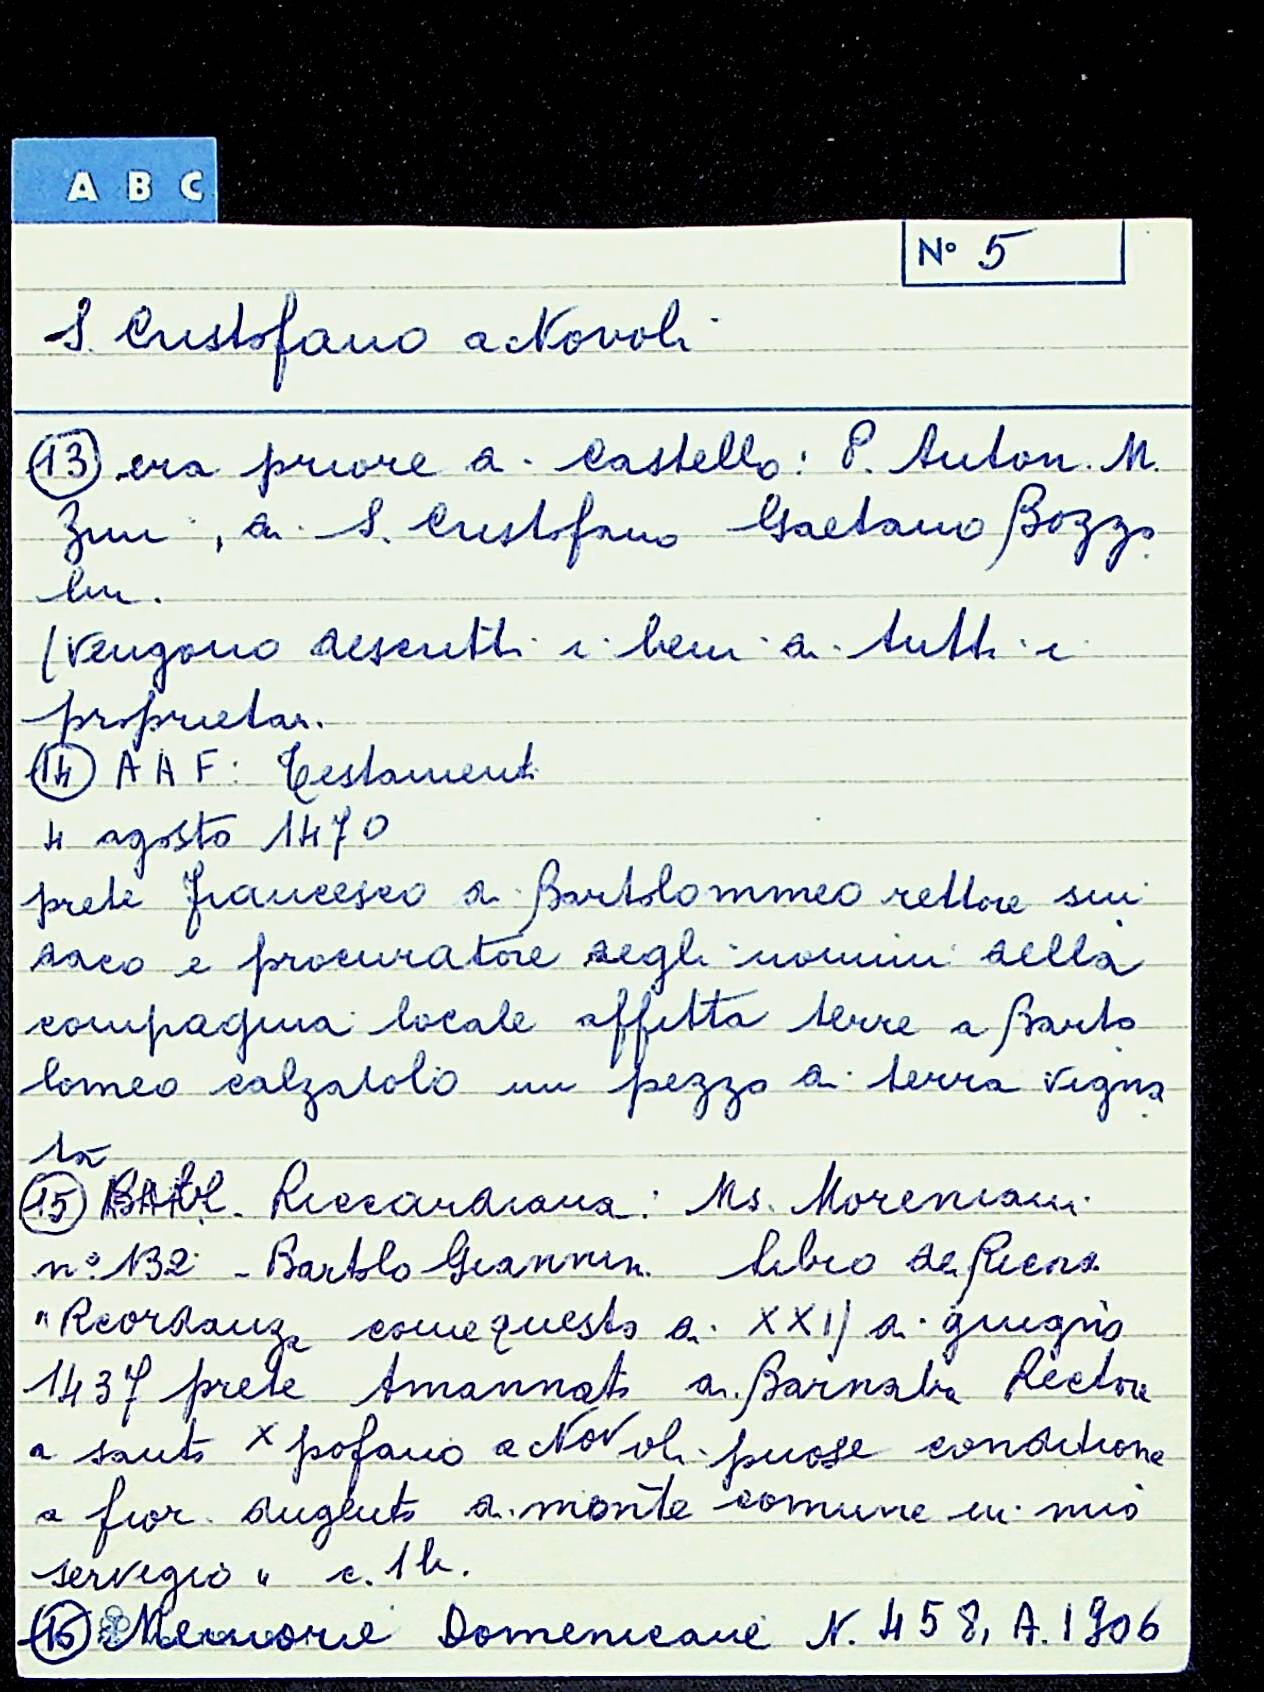 A B C
N° 5
S. Cristofano a Novoli
(13) era priore di Castello: P. Anton. M.
Zini, di S. Cristofano Gaetano Bozzo
lini.
(vengono descritti i beni di tutti i
proprietari.
(14) A A F: Testamenti
4 agosto 1470
prete Francesco di Bartolommeo rettore sin
daco e procuratore degli uomini della
compagnia locale affitta terre a Barto
lomeo calzaiolo un pezzo di terra vigna
ta
(15) Riccardiana: Ms. Moreniani
n° 132 - Bartolo Giannini Libro di Ricor.
"Ricordanza come questo dì XXII di giugno
1437 prete Amannato di Barnaba Rectore
a santo Xpofano a Novoli puose conditione
a fior. dugento di monte comune in mio
servigio" c. 1 b.
(16) Memorie Domenicane N. 458, A. 1906